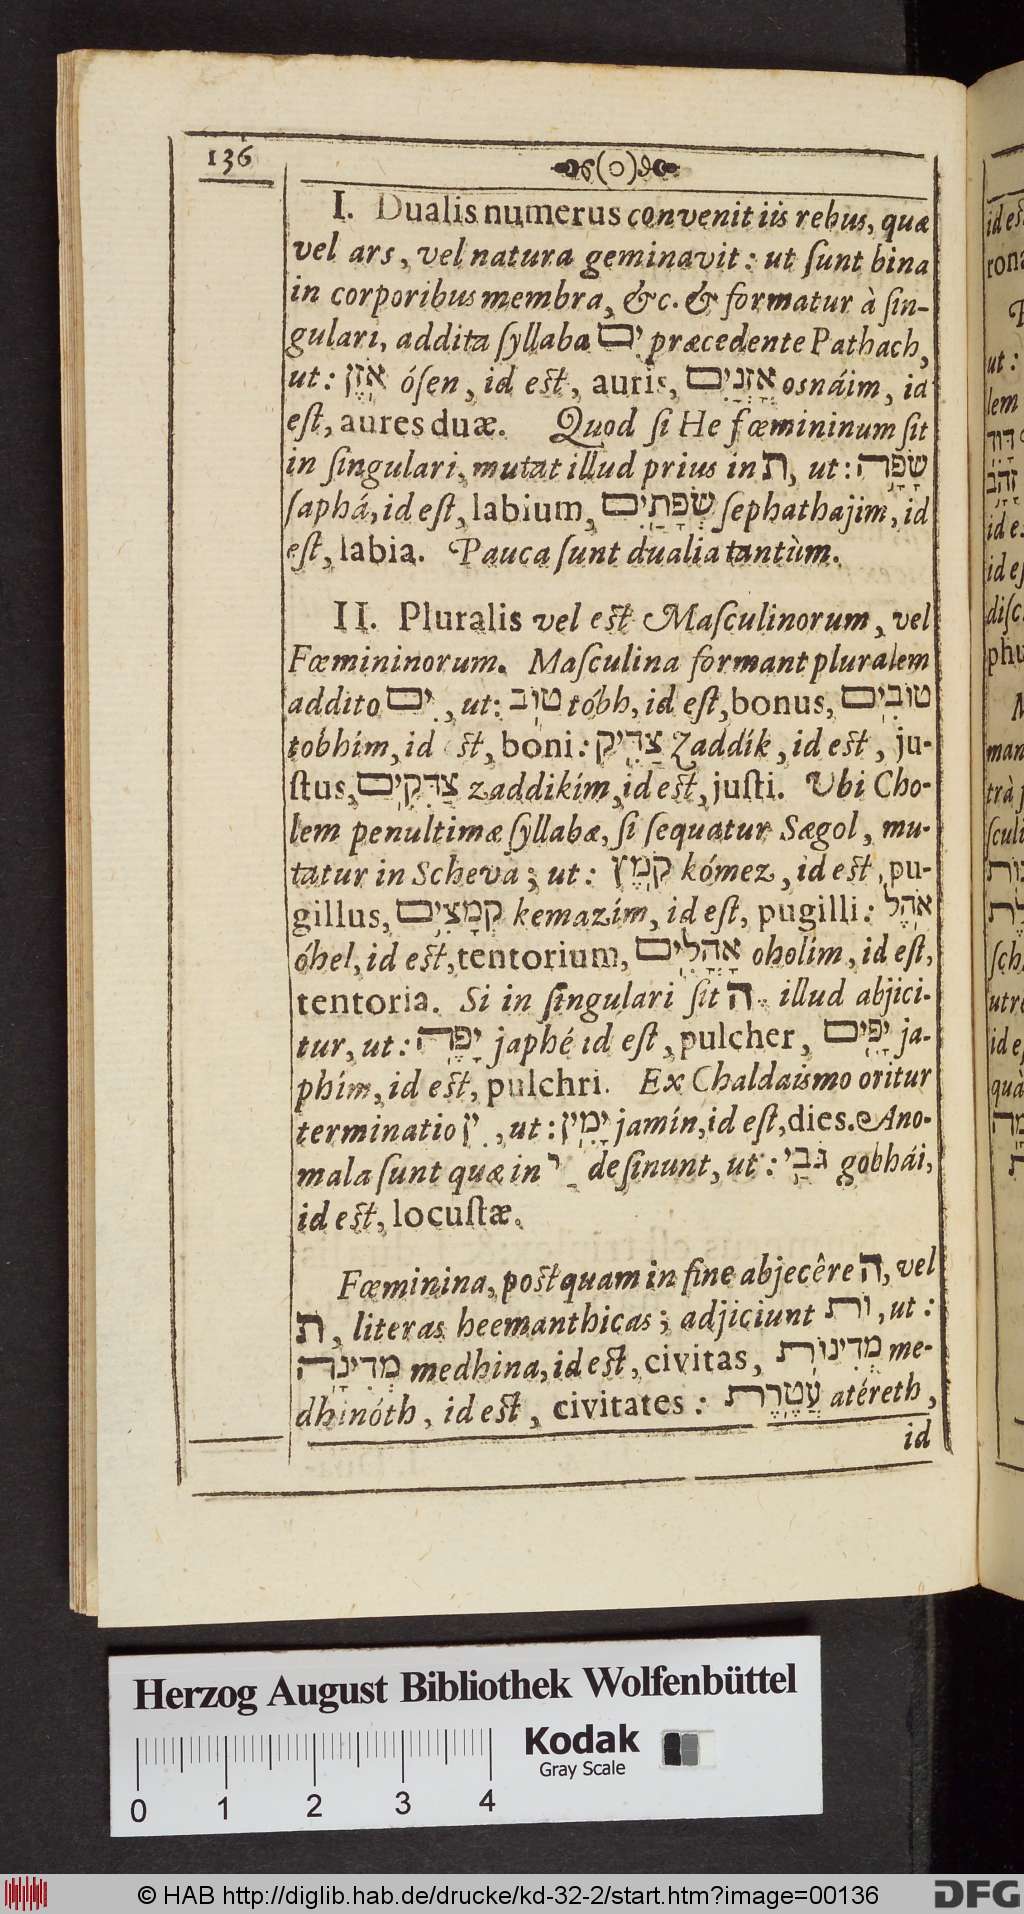 136
I. Dualis numerus convenit iis rebus, quæ
vel ars, vel natura geminavit: ut ſunt bina
in corporibus membra, &c. & formatur à ſin-
gulari, addita ſyllaba יִם præcedente Pathach,
ut: אֹזֶן óſen, id eſt, auris, אָזְנַיִם osnáim, id
eſt, aures duæ. Quod ſi He fœmininum ſit
in ſingulari, mutat illud prius in ת, ut: שָׂפָה
ſaphá, id eſt, labium, שְׂפָתַיִם ſephathajim, id
eſt, labia. Pauca ſunt dualia tantùm.
II. Pluralis vel eſt Maſculinorum, vel
Fœmininorum. Maſculina formant pluralem
addito ִים, ut: טוֹב tóbh, id eſt, bonus, טוֹבִים
tobhím, id eſt, boni: צַדִּיק Zaddík, id eſt, ju-
ſtus, צַדִּקִים zaddikím, id eſt, juſti. Ubi Cho-
lem penultimæ ſyllabæ, ſi ſequatur Sægol, mu-
tatur in Scheva; ut: קֹמֶץ kómez, id eſt, pu-
gillus, קְמָצִים kemazím, id eſt, pugilli: אֹהֶל
óhel, id eſt, tentorium, אָהֳלִים oholím, id eſt,
tentoria. Si in ſingulari ſit ה illud abjici-
tur, ut: יָפֶה japhé id eſt, pulcher, יָפִים ja-
phím, id eſt, pulchri. Ex Chaldaismo oritur
terminatio ִין, ut: יָמִין jamín, id eſt, dies. Ano-
mala ſunt quæ in ַי deſinunt, ut: גֹּבַי gobhái,
id eſt, locuſtæ.
Fœminina, poſtquam in fine abjecêre ה, vel
ת, literas heemanthicas; adjiciunt וֹת, ut:
מְדִינָה medhina, id eſt, civitas, מְדִינוֹת me-
dhinóth, id eſt, civitates: עֲטֶרֶת atéreth,
id
Herzog August Bibliothek Wolfenbüttel
Kodak
Gray Scale
0 1 2 3 4
© HAB http://diglib.hab.de/drucke/kd-32-2/start.htm?image=00136
DFG